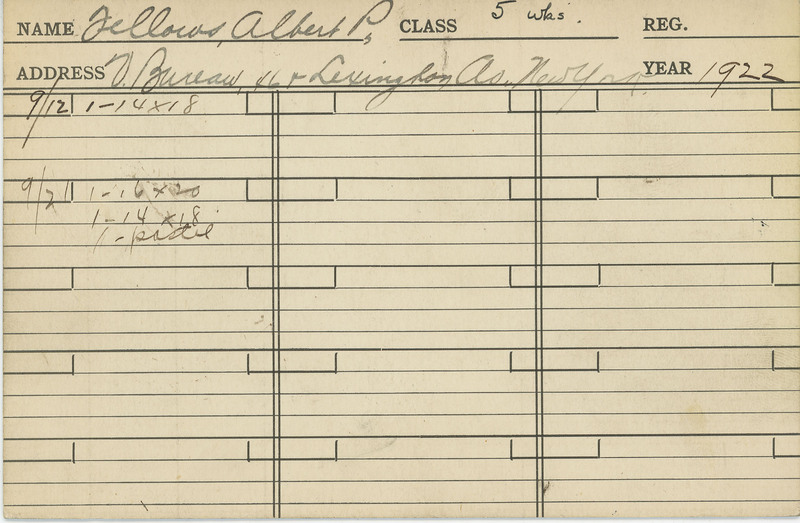 NAME Fellows, Albert P. CLASS 5 wks. REG.
ADDRESS V. Bureau, Lexington Av., New York. YEAR 1922
9/12 1-14x18
9/21 1-16x20
1-14x18
1-pastel